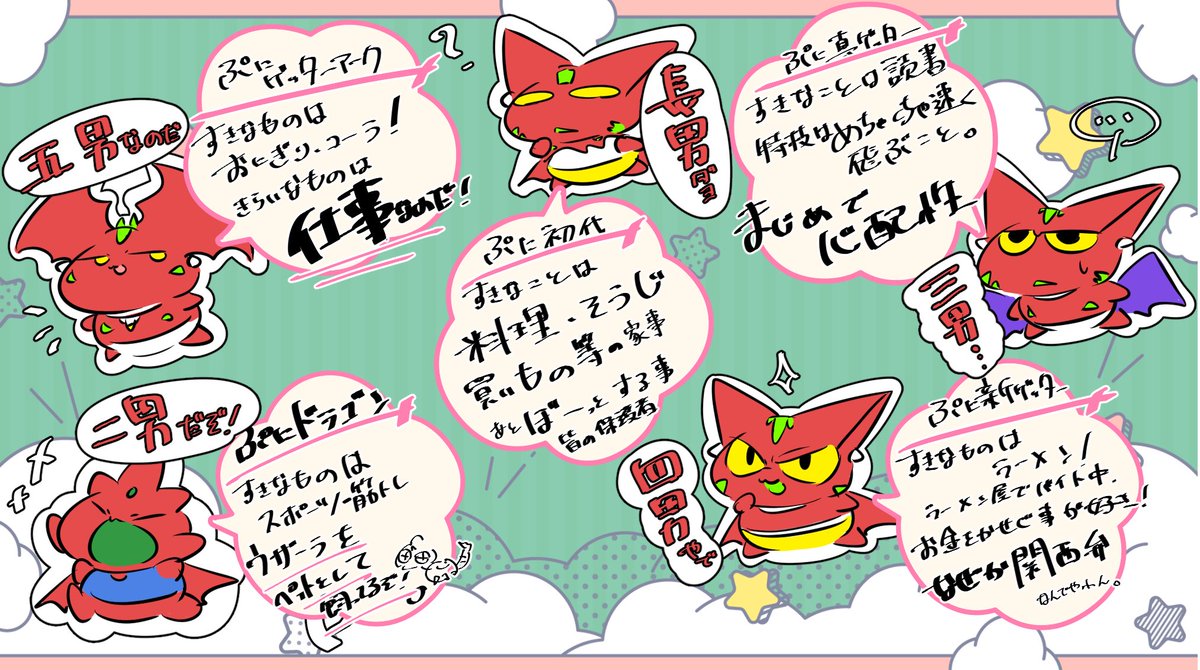 ぷにゲッターアーク
すきなものは
おにぎり、コーラ!
きらいなものは
仕事なのだ!
五男なのだ
?
長男ダヨ
ぷに初代
すきなことは
料理、そうじ
買いもの等の家事
あとぼーっとする事
皆の保護者
ぷに真ゲッター
すきなことは読書
特技はめちゃくちゃ速く
飛ぶこと。
まじめで
心配性
...
三男...
ぷにドラゴン
すきなものは
スポーツ、筋トレ
ウザーラを
ペットとして
飼ってるぞ!
二男だぞ!
ぷに新ゲッター
すきなものは
ラーメン!
ラーメン屋でバイト中、
お金をかせぐ事が好き!
なぜか関西弁
なんでやねん。
四男やで